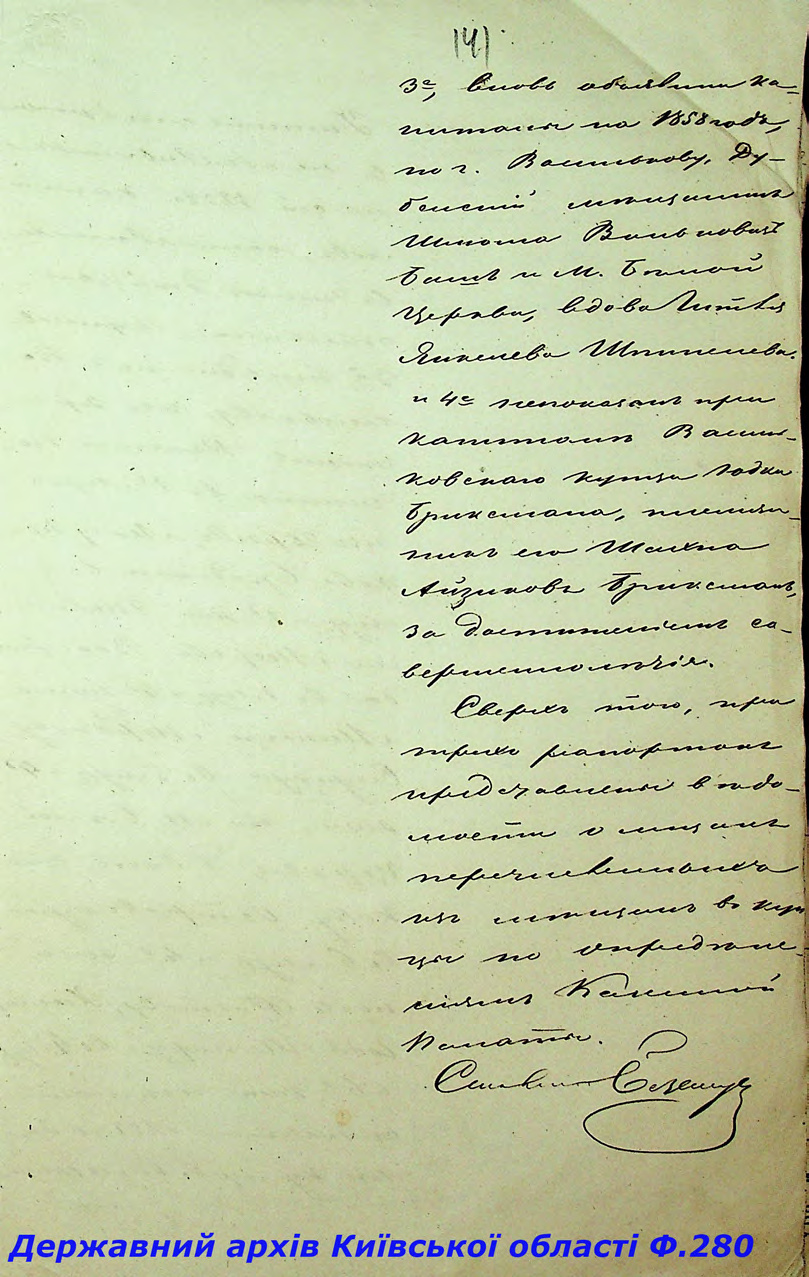 141
3е, вновь объявили ка=
питалы на 1858 годъ,
по г. Василькову, Ду-
бенскій мѣщанинъ
Шлиома Вольковичъ
Башъ и м. Бѣлой
Церкви, вдова Гитля
Янкелева Шпигелева.
и 4е непоказанъ при
капиталѣ Василь-
ковскаго купца Іодки
Бриксмана, племян-
никъ его Шахна
Айзиковъ Бриксманъ,
за достиженіемъ со-
вершеннолѣтія.
Сверхъ того, при
трехъ рапортахъ
представлены вѣдо-
мости о лицахъ
перечисленныхъ
изъ мѣщанъ въ куп
цы по опредѣле-
ніямъ Казенной
Палаты.
Державний архів Київської області Ф.280